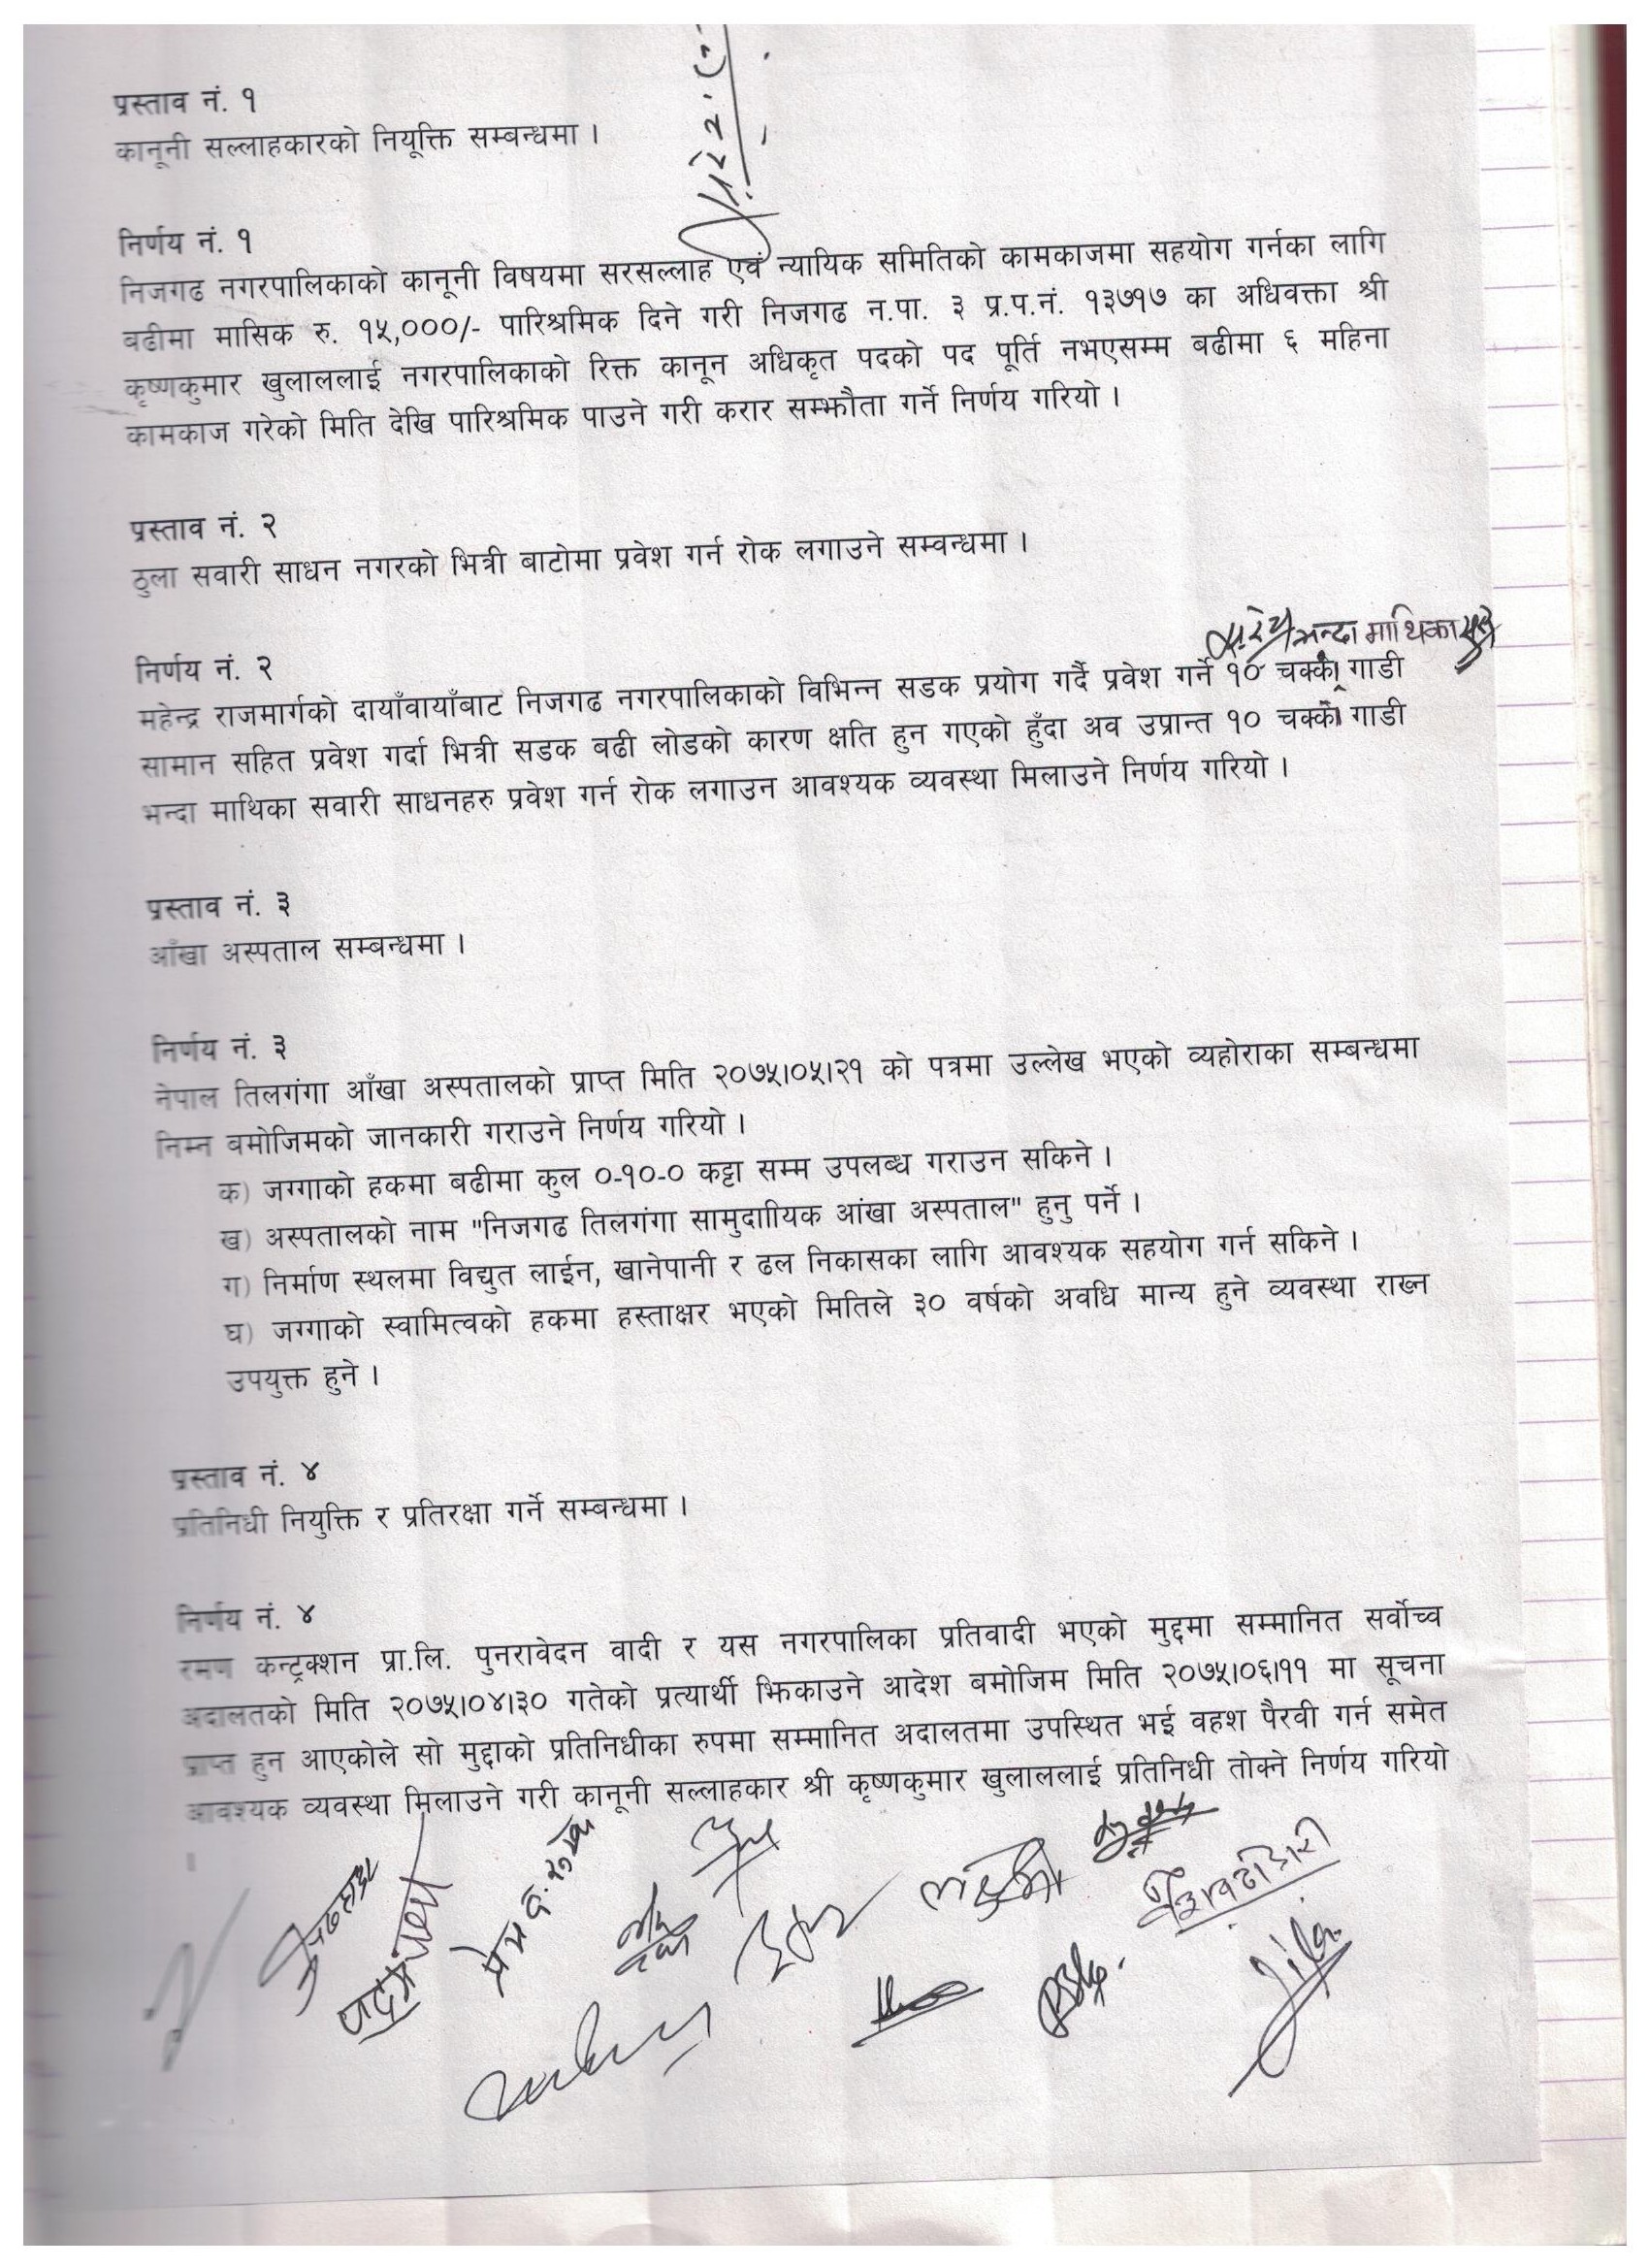 प्रस्ताव नं. १
कानूनी सल्लाहकारको नियूक्ति सम्बन्धमा ।
निर्णय नं. १
निजगढ नगरपालिकाको कानूनी विषयमा सरसल्लाह एवं न्यायिक समितिको कामकाजमा सहयोग गर्नका लागि
बढीमा मासिक रु. १५,०००/- पारिश्रमिक दिने गरी निजगढ न.पा. ३ प्र.प.नं. १३७१७ का अधिवक्ता श्री
कृष्णकुमार खुलाललाई नगरपालिकाको रिक्त कानून अधिकृत पदको पद पूर्ति नभएसम्म बढीमा ६ महिना
कामकाज गरेको मिति देखि पारिश्रमिक पाउने गरी करार सम्झौता गर्ने निर्णय गरियो ।
प्रस्ताव नं. २
ठुला सवारी साधन नगरको भित्री बाटोमा प्रवेश गर्न रोक लगाउने सम्वन्धमा ।
भन्दा माथिका
निर्णय नं. २
महेन्द्र राजमार्गको दायाँवायाँबाट निजगढ नगरपालिकाको विभिन्न सडक प्रयोग गर्दै प्रवेश गर्ने १० चक्का गाडी
सामान सहित प्रवेश गर्दा भित्री सडक बढी लोडको कारण क्षति हुन गएको हुँदा अव उप्रान्त १० चक्के गाडी
भन्दा माथिका सवारी साधनहरु प्रवेश गर्न रोक लगाउन आवश्यक व्यवस्था मिलाउने निर्णय गरियो ।
प्रस्ताव नं. ३
आँखा अस्पताल सम्बन्धमा ।
निर्णय नं. ३
नेपाल तिलगंगा आँखा अस्पतालको प्राप्त मिति २०७५।०५।२१ को पत्रमा उल्लेख भएको व्यहोराका सम्बन्धमा
निम्न बमोजिमको जानकारी गराउने निर्णय गरियो ।
क) जग्गाको हकमा बढीमा कुल ०-१०-० कट्टा सम्म उपलब्ध गराउन सकिने ।
ख) अस्पतालको नाम "निजगढ तिलगंगा सामुदाायिक आंखा अस्पताल" हुनु पर्ने ।
ग) निर्माण स्थलमा विद्युत लाईन, खानेपानी र ढल निकासका लागि आवश्यक सहयोग गर्न सकिने ।
घ) जग्गाको स्वामित्वको हकमा हस्ताक्षर भएको मितिले ३० वर्षको अवधि मान्य हुने व्यवस्था राख्न
उपयुक्त हुने ।
प्रस्ताव नं. ४
प्रतिनिधी नियुक्ति र प्रतिरक्षा गर्ने सम्बन्धमा ।
निर्णय नं. ४
रमण कन्ट्रक्शन प्रा.लि. पुनरावेदन वादी र यस नगरपालिका प्रतिवादी भएको मुद्दमा सम्मानित सर्वोच्च
अदालतको मिति २०७५।०४।३० गतेको प्रत्यार्थी झिकाउने आदेश बमोजिम मिति २०७५।०६।११ मा सूचना
प्राप्त हुन आएकोले सो मुद्दाको प्रतिनिधीका रुपमा सम्मानित अदालतमा उपस्थित भई वहश पैरवी गर्न समेत
आवश्यक व्यवस्था मिलाउने गरी कानूनी सल्लाहकार श्री कृष्णकुमार खुलाललाई प्रतिनिधी तोक्ने निर्णय गरियो
।